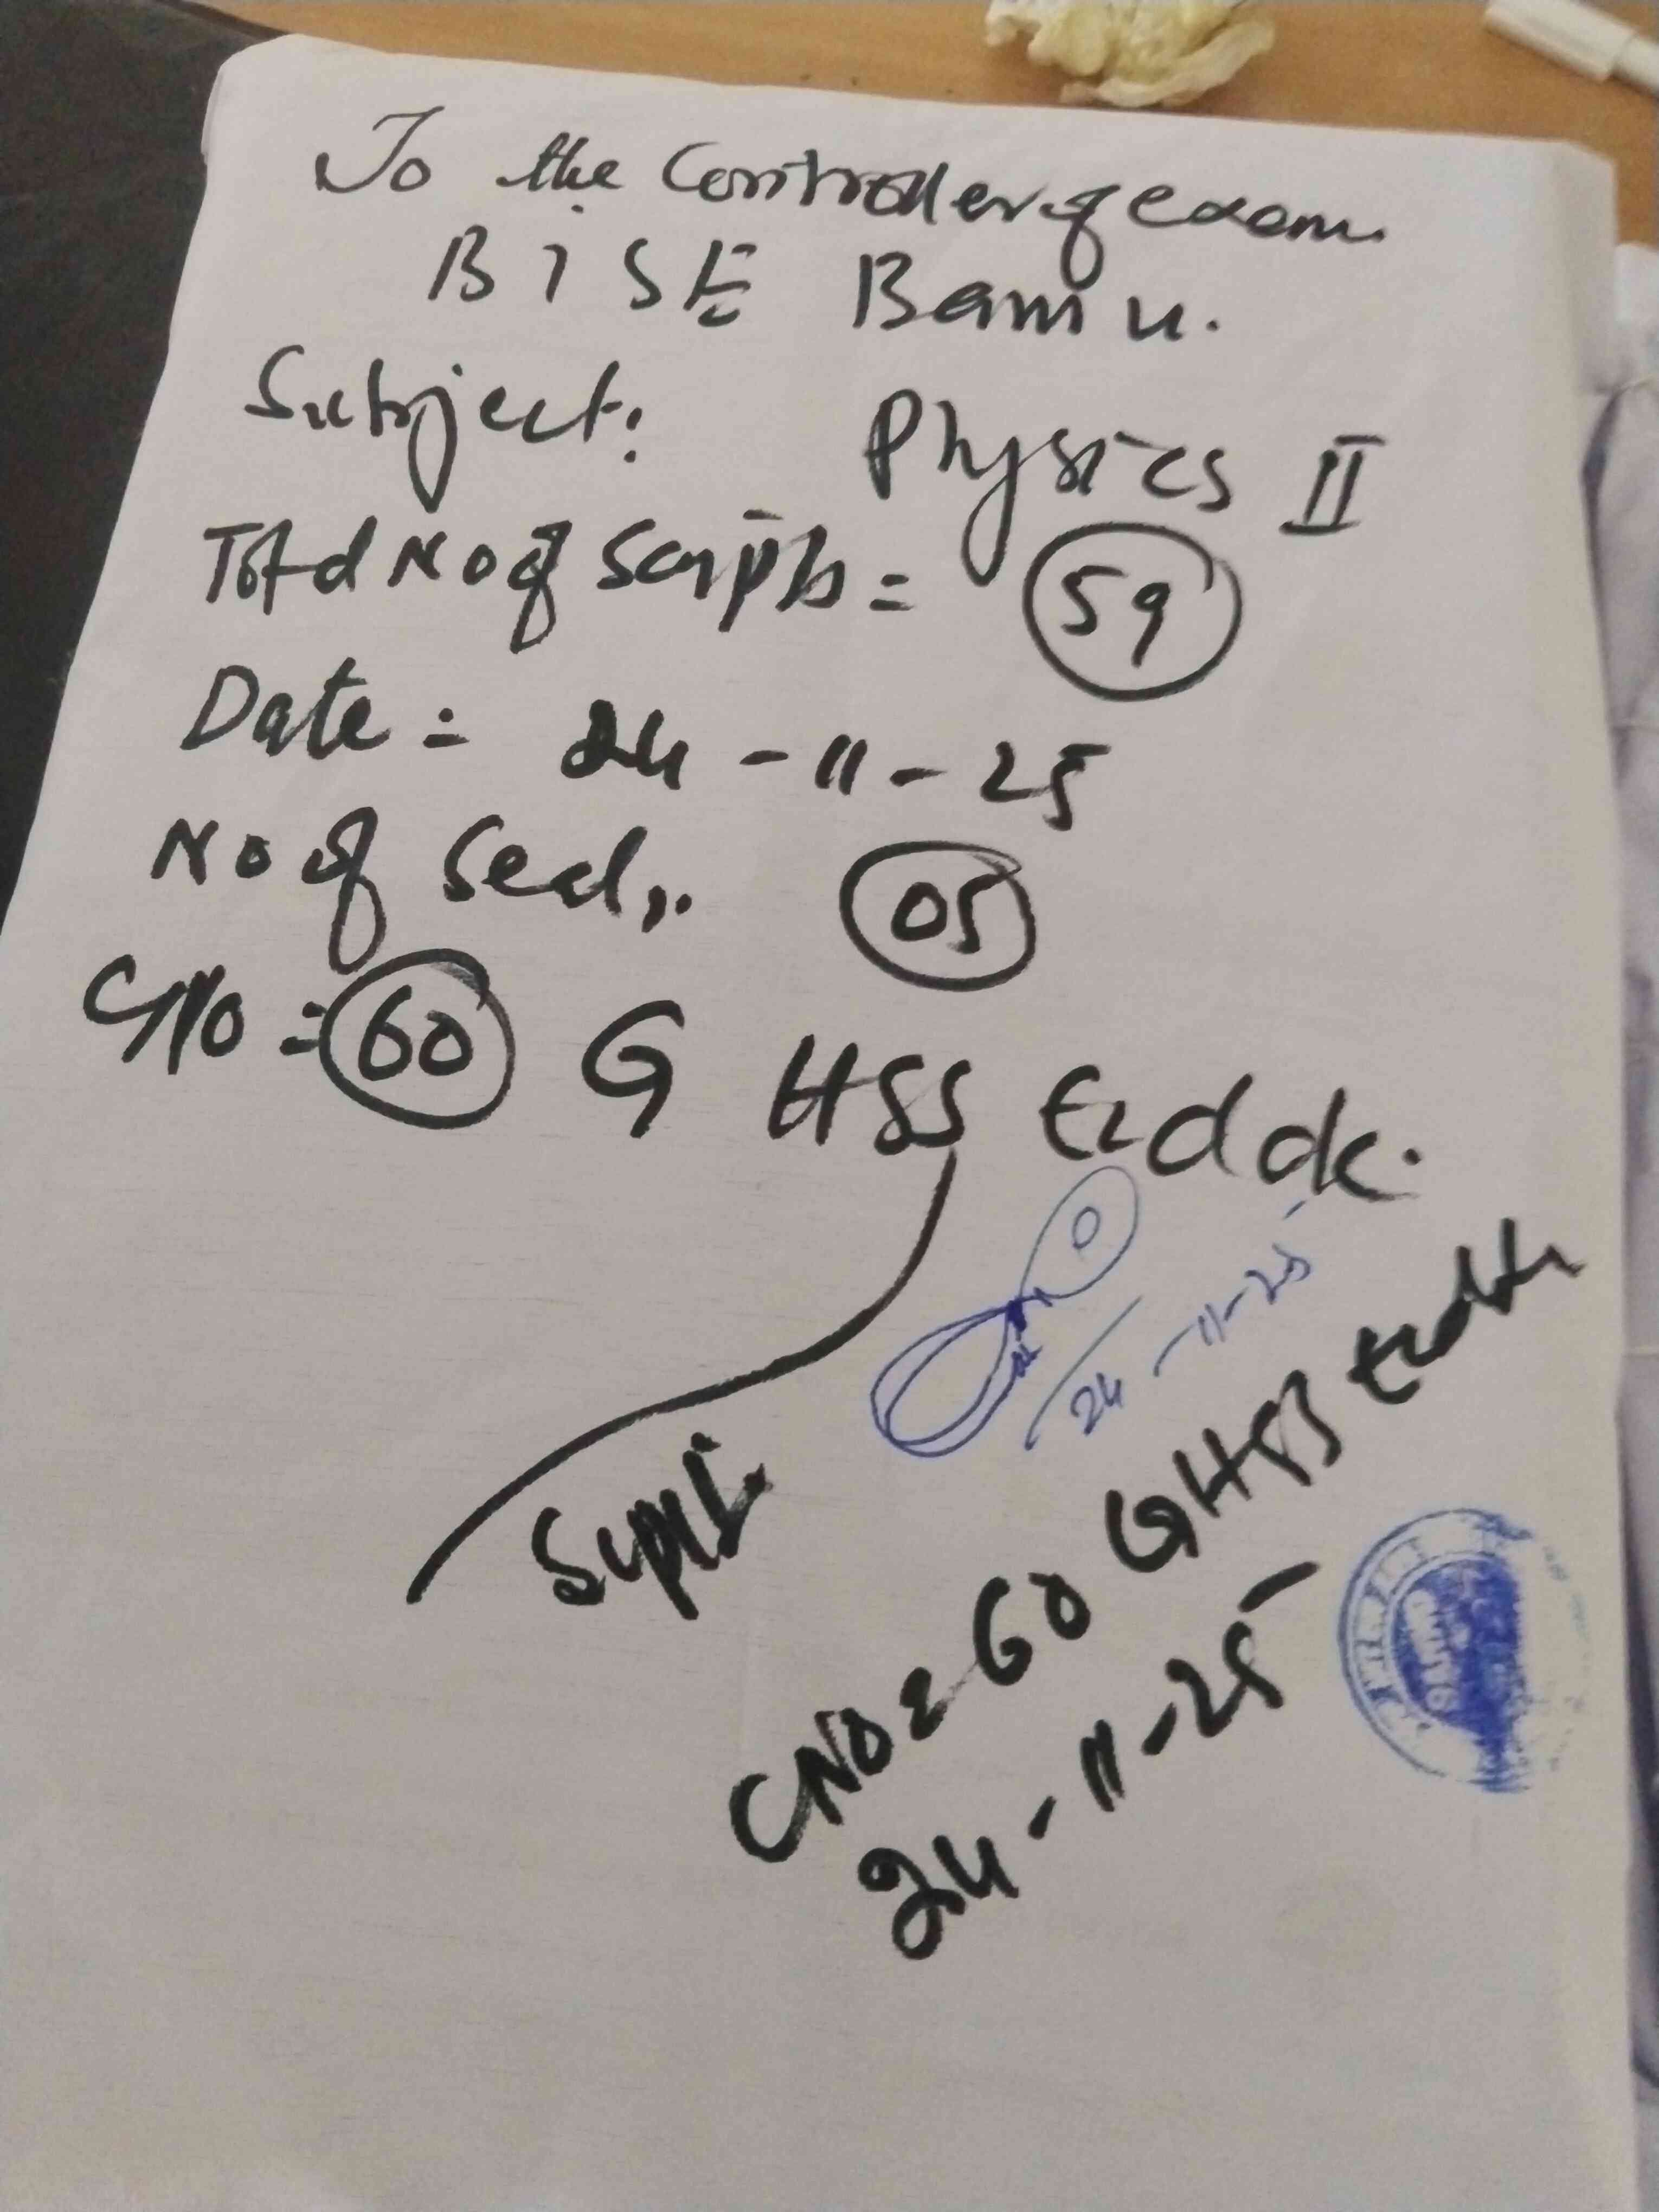 To the Controller of exam.
BISE Bannu.
Subject: Physics II
Total No of Scripts = 59
Date = 24-11-25
No of Seals 05
C/No = 60 G HSS
24-11-25
Supt.
CNO = 60 GHSS
24-11-25
BANNU